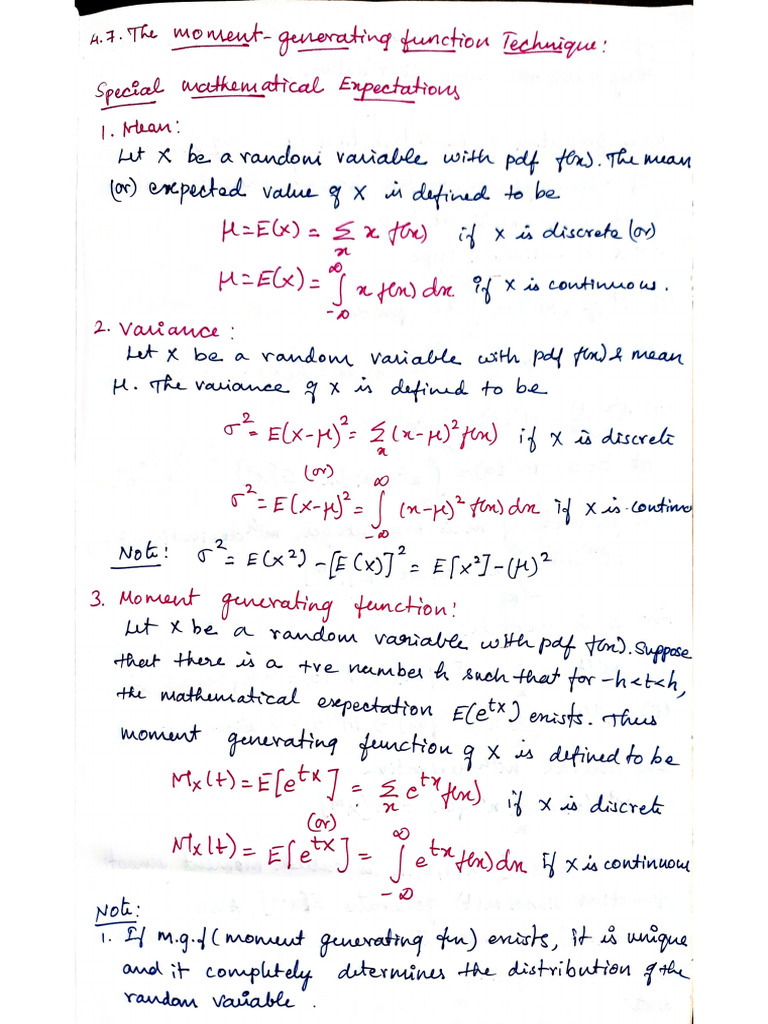 4.7. The moment-generating function Technique:
Special mathematical Expectations
1. Mean:
Let X be a random variable with pdf f(x). The mean
(or) expected value of X is defined to be
μ = E(x) = Σ_x x f(x) if X is discrete (or)
μ = E(x) = ∫_{-∞}^{∞} x f(x) dx if X is continuous.
2. Variance:
Let X be a random variable with pdf f(x) & mean
μ. The variance of X is defined to be
σ² = E(X-μ)² = Σ_x (x-μ)² f(x) if X is discrete
(or)
σ² = E(X-μ)² = ∫_{-∞}^{∞} (x-μ)² f(x) dx if X is continuo
Note: σ² = E(X²) - [E(X)]² = E[X²] - (μ)²
3. Moment generating function:
Let X be a random variable with pdf f(x). Suppose
that there is a +ve number h such that for -h<t<h,
the mathematical expectation E(e^{tx}) exists. Thus
moment generating function of X is defined to be
M_X(t) = E[e^{tX}] = Σ_x e^{tx} f(x) if X is discrete
(or)
M_X(t) = E[e^{tX}] = ∫_{-∞}^{∞} e^{tx} f(x) dx If X is continuous
Note:
1. If m.g.f (moment generating fn) exists, it is unique
and it completely determines the distribution of the
random variable.